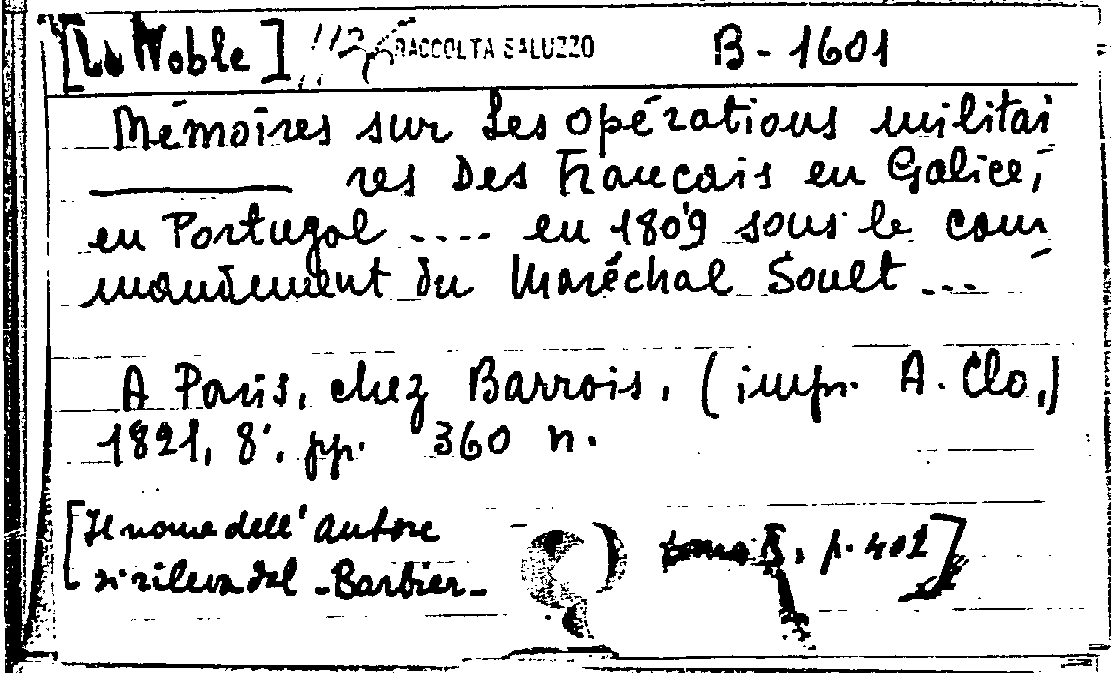 [Le Noble] RACCOLTA SALUZZO B-1601
Mémoires sur les opérations militai
res Des Français en Galice,
en Portugal .... en 1809 sous le com
mandement du Maréchal Soult ...
A Paris, chez Barrois, (impr. A. Clo,)
1821, 8°. pp. 360 n.
[Il nome dell'autore
si rileva dal -Barbier- tomo , p. 402]